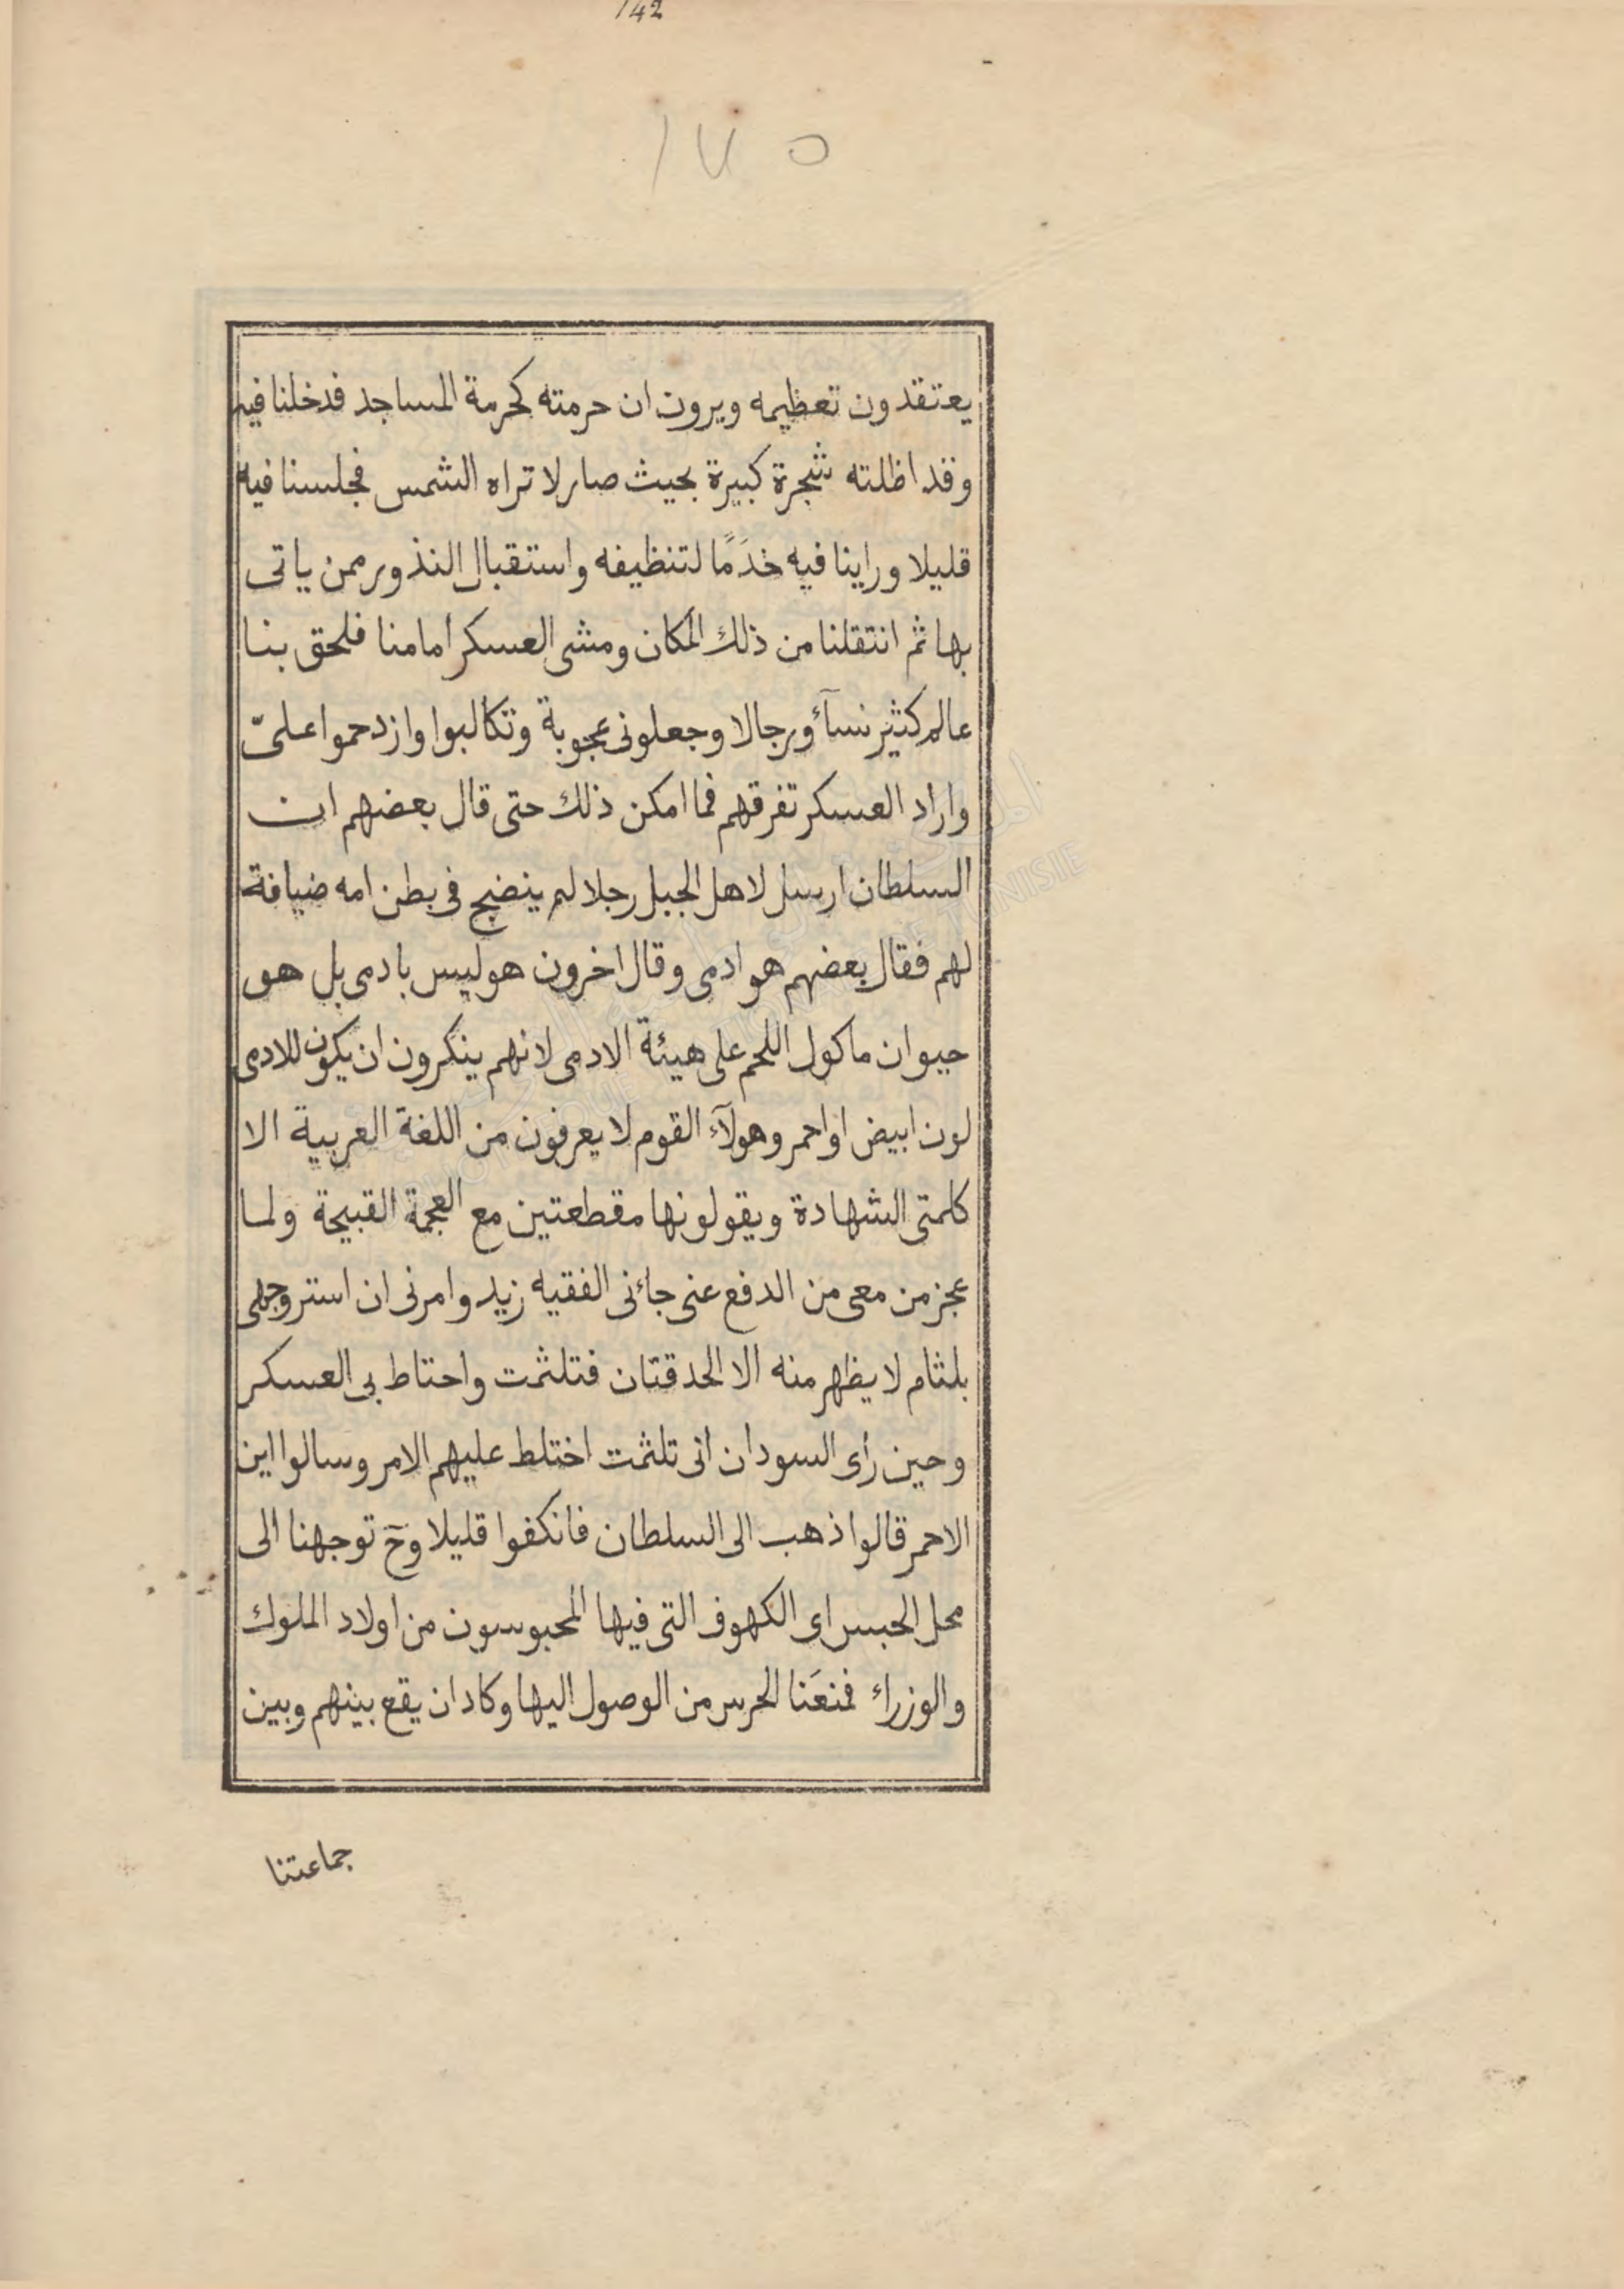 142
١٧٥
يعتقدون تعظيمه ويرون ان حرمته كحرمة المساجد فدخلنا فيه
وقد اظلته شجرة كبيرة بحيث صار لا تراه الشمس فجلسنا فيه
قليلا وراينا فيه خدَمًا لتنظيفه واستقبال النذور ممن ياتى
بها ثم انتقلنا من ذلك المكان ومشى العسكر أمامنا فلحق بنا
عالم كثير نسآء ورجالا وجعلونى عجوبة وتكالبوا وازدحموا علىّ
واراد العسكر تفرقهم فما امكن ذلك حتى قال بعضهم ان
السلطان ارسل لاهل الجبل رجلا لم ينضج فى بطن امه ضيافة
لهم فقال بعضهم هو ادمى وقال اخرون هو ليس بادمى بل هو
حيوان ماكول اللحم على هيئة الادمى لانهم ينكرون ان يكون للادمى
لون ابيض او احمر وهولآء القوم لا يعرفون من اللغة العربية الا
كلمتى الشهادة ويقولونها مقطعتين مع العجمة القبيحة ولما
عجز من معى من الدفع عنى جاءنى الفقيه زيد وامرنى ان استر وجهى
بلثام لا يظهر منه الا الحدقتان فتلثمت واحتاط بى العسكر
وحين رأى السودان أنى تلثمت اختلط عليهم الامر وسالوا اين
الاحمر قالوا ذهب الى السلطان فانكفوا قليلا وحٓ توجهنا الى
محل الحبس اى الكهوف التى فيها المحبوسون من اولاد الملوك
والوزراء فمنعَنا الحرس من الوصول اليها وكاد ان يقع بينهم وبين
جماعتنا